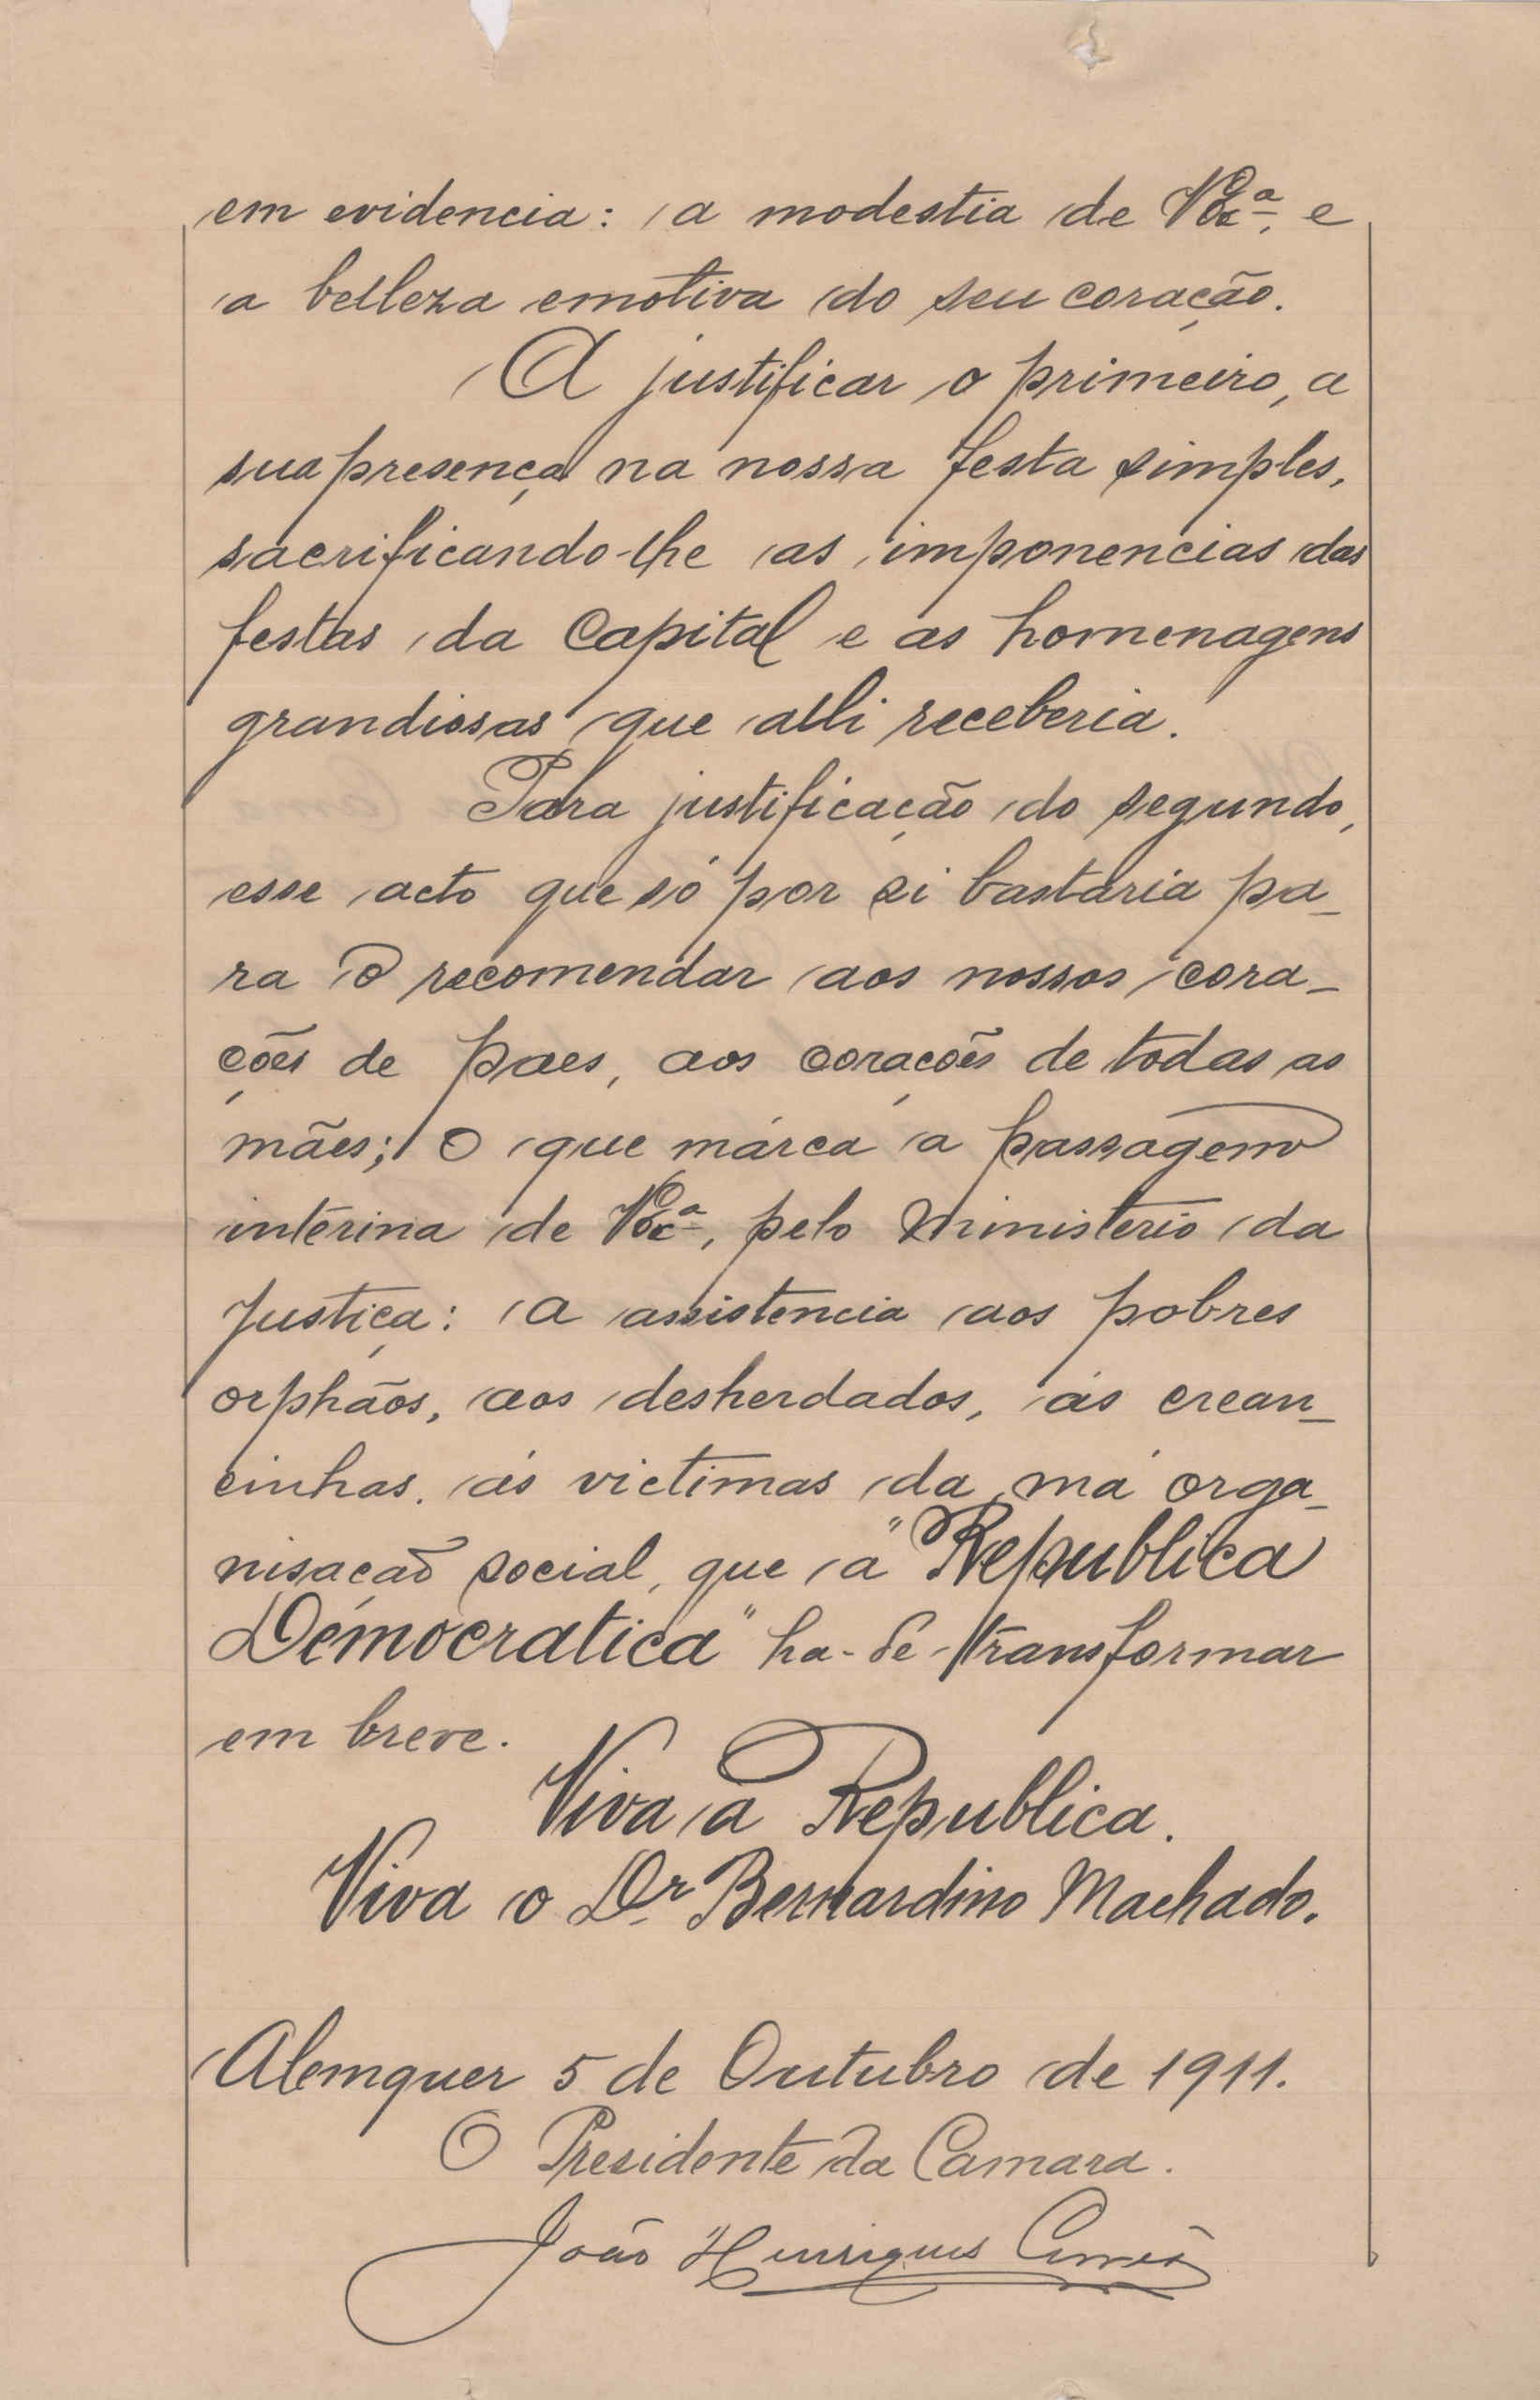 em evidencia: a modestia de V Exª, e
a belleza emotiva do seu coração.
A justificar o primeiro, a
sua presença na nossa festa simples,
sacrificando-lhe as imponencias das
festas da Capital e as homenagens
grandiosas que alli receberia.
Para justificação do segundo,
esse acto que só por si bastaria pa-
ra o recomendar aos nossos cora-
ções de paes, aos corações de todas as
mães; o que márca a passagem
interina de V Exª, pelo Ministerio da
Justiça: a assistencia aos pobres
orphãos, aos desherdados, ás crean-
cinhas, ás victimas da má orga-
nisação social, que a "Republica
Democratica" ha-de transformar
em breve.
Viva a Republica.
Viva o Dr Bernardino Machado.
Alemquer 5 de Outubro de 1911.
O Presidente da Camara.
João Henriques